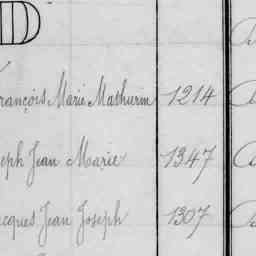 D
rançois Marie Mathurin 1214
seph Jean Marie 1347
acques Jean Joseph 1307